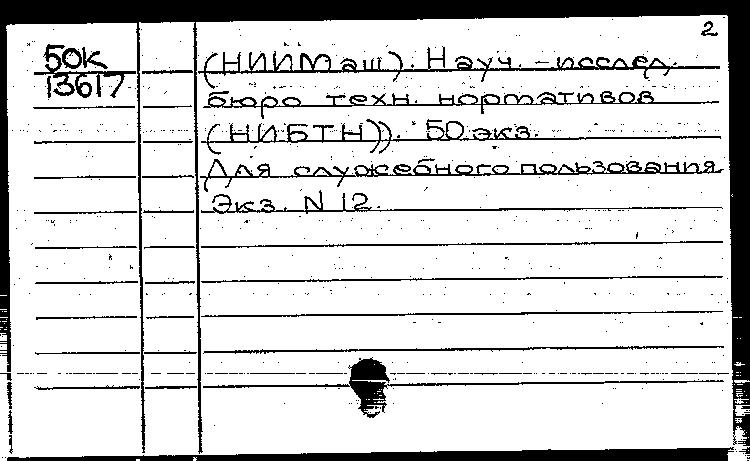 2
50К
13617
(НИИМаш). Науч. -исслед.
бюро техн. нормативов
(НИБТН)). 50 экз.
Для служебного пользования
Экз. N 12.